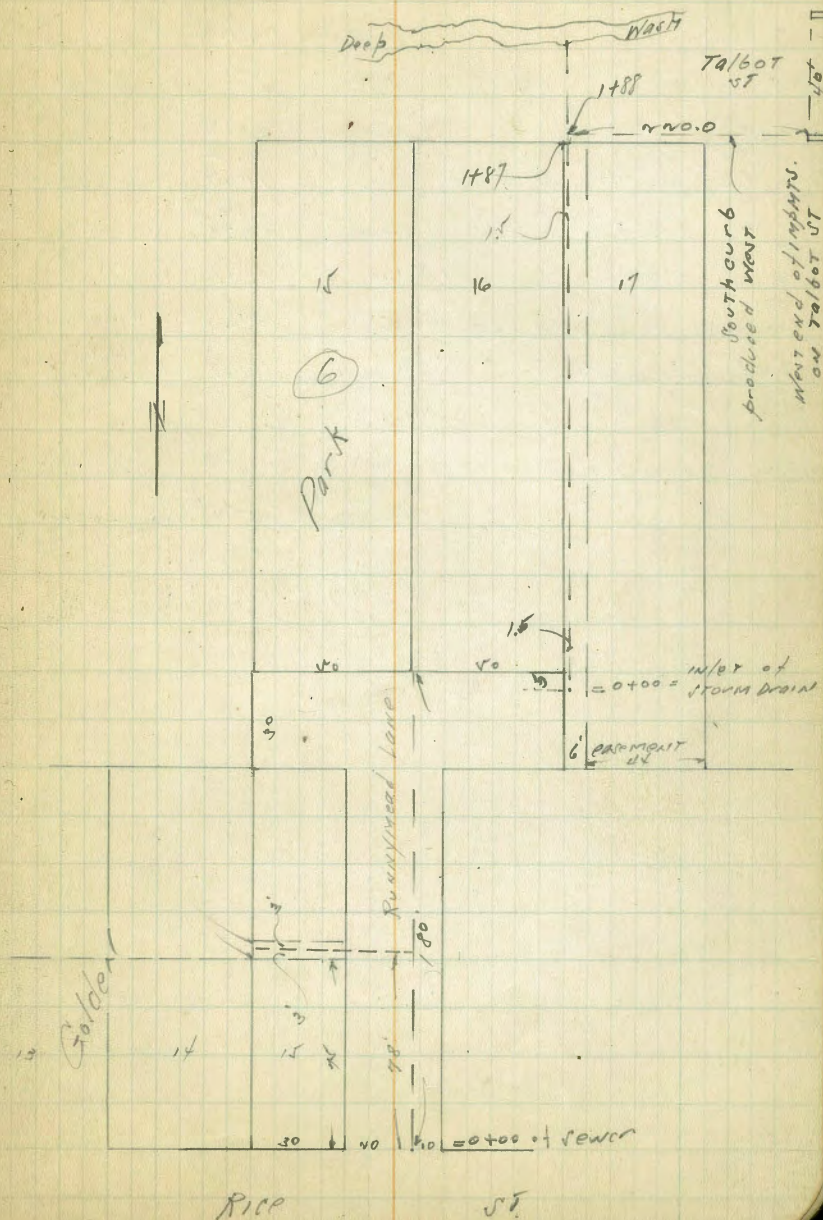 Deep Wash
Talbot
ST
1+88
220.0
1+87
1.5
15
16
17
6
Park
South curb
produced west
West end of IMPMTS.
on Talbot ST
1.5
50
50
5
= 0+00 = inlet of
storm drain
30
6' easement
Runnymead Lane
180'
3'
3'
Golden
13
14
15
78'
30
20
10
=0+00 of sewer
Rice ST.